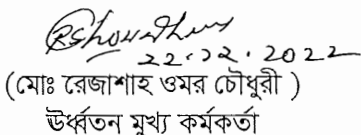 22.12.2022
(মোঃ রেজাশাহ ওমর চৌধুরী )
ঊর্ধ্বতন মুখ্য কর্মকর্তা